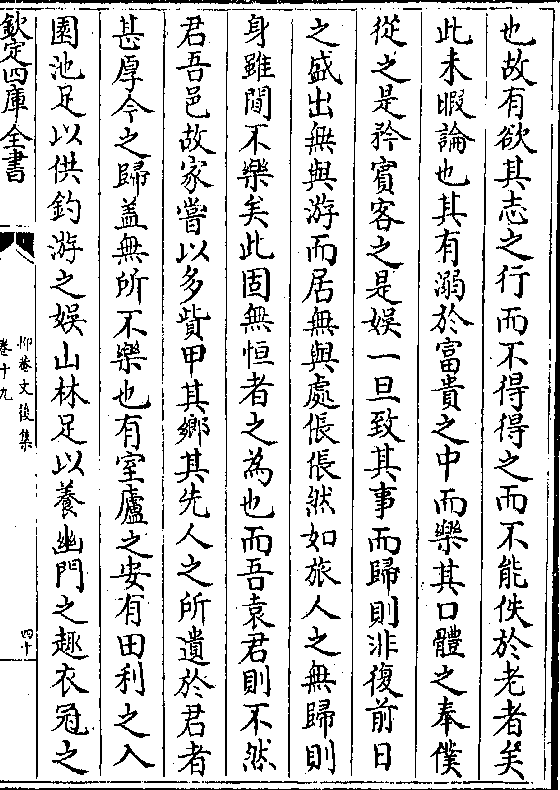 也故有欲其志之行而不得得之而不能佚於老者矣
此未暇論也其有溺於富貴之中而樂其口體之奉僕
從之是矜賓客之是娯一旦致其事而歸則非復前日
之盛出無與游而居無與處倀倀然如旅人之無歸則
身雖閒不樂矣此固無恒者之為也而吾袁君則不然
君吾邑故家嘗以多貲甲其鄉其先人之所遺於君者
甚厚今之歸葢無所不樂也有室廬之安有田利之入
園池足以供釣游之娯山林足以養幽門之趣衣冠之
欽定四庫全書
抑菴文後集
卷十九
四十